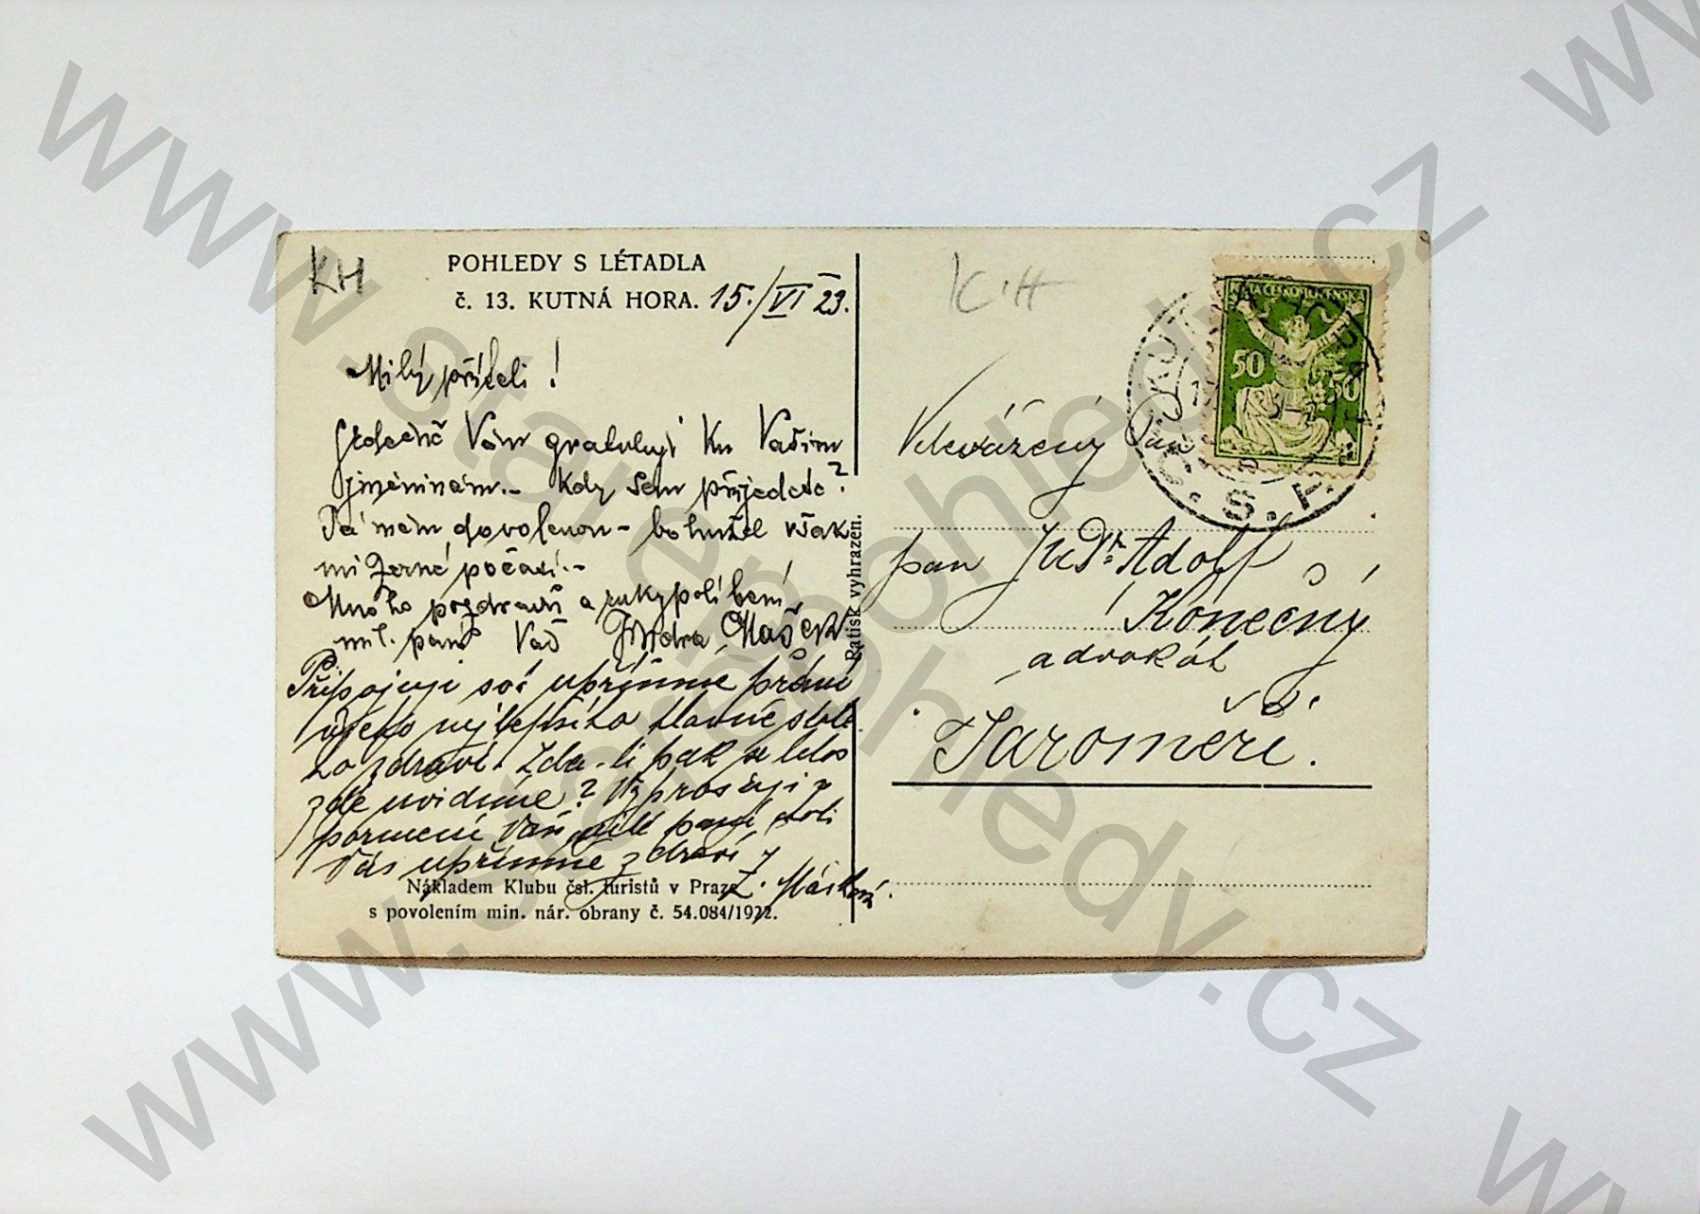 KH
POHLEDY S LÉTADLA
č. 13. KUTNÁ HORA. 15./VI 23.
Milý příteli!
Srdečně Vám gratuluji ku Vašim
jmeninám.- Kdy sem přijedete?
Já mám dovolenou - bohužel však
mizerné počasí.-
Mnoho pozdravů a rukypolíbení
mil. paní Váš Jindra Mašek
Připojuji své upřímné přání
všeho nejlepšího hlavně stálé
ho zdraví. Zda-li pak se letos
zde uvidíme? Vyprošuji
Vás upřímně zdraví
Z. Mášková.
Nákladem Klubu čsl. turistů v Praze
s povolením min. nár. obrany č. 54.084/1922.
Patisk vyhrazen.
K.H
50 50
Č.S.P.
Velevážený Pan
pan JUDr. Adolf
Konečný
advokát
v
Jaroměři.
www.starepohledy.cz
www.starepohledy.cz